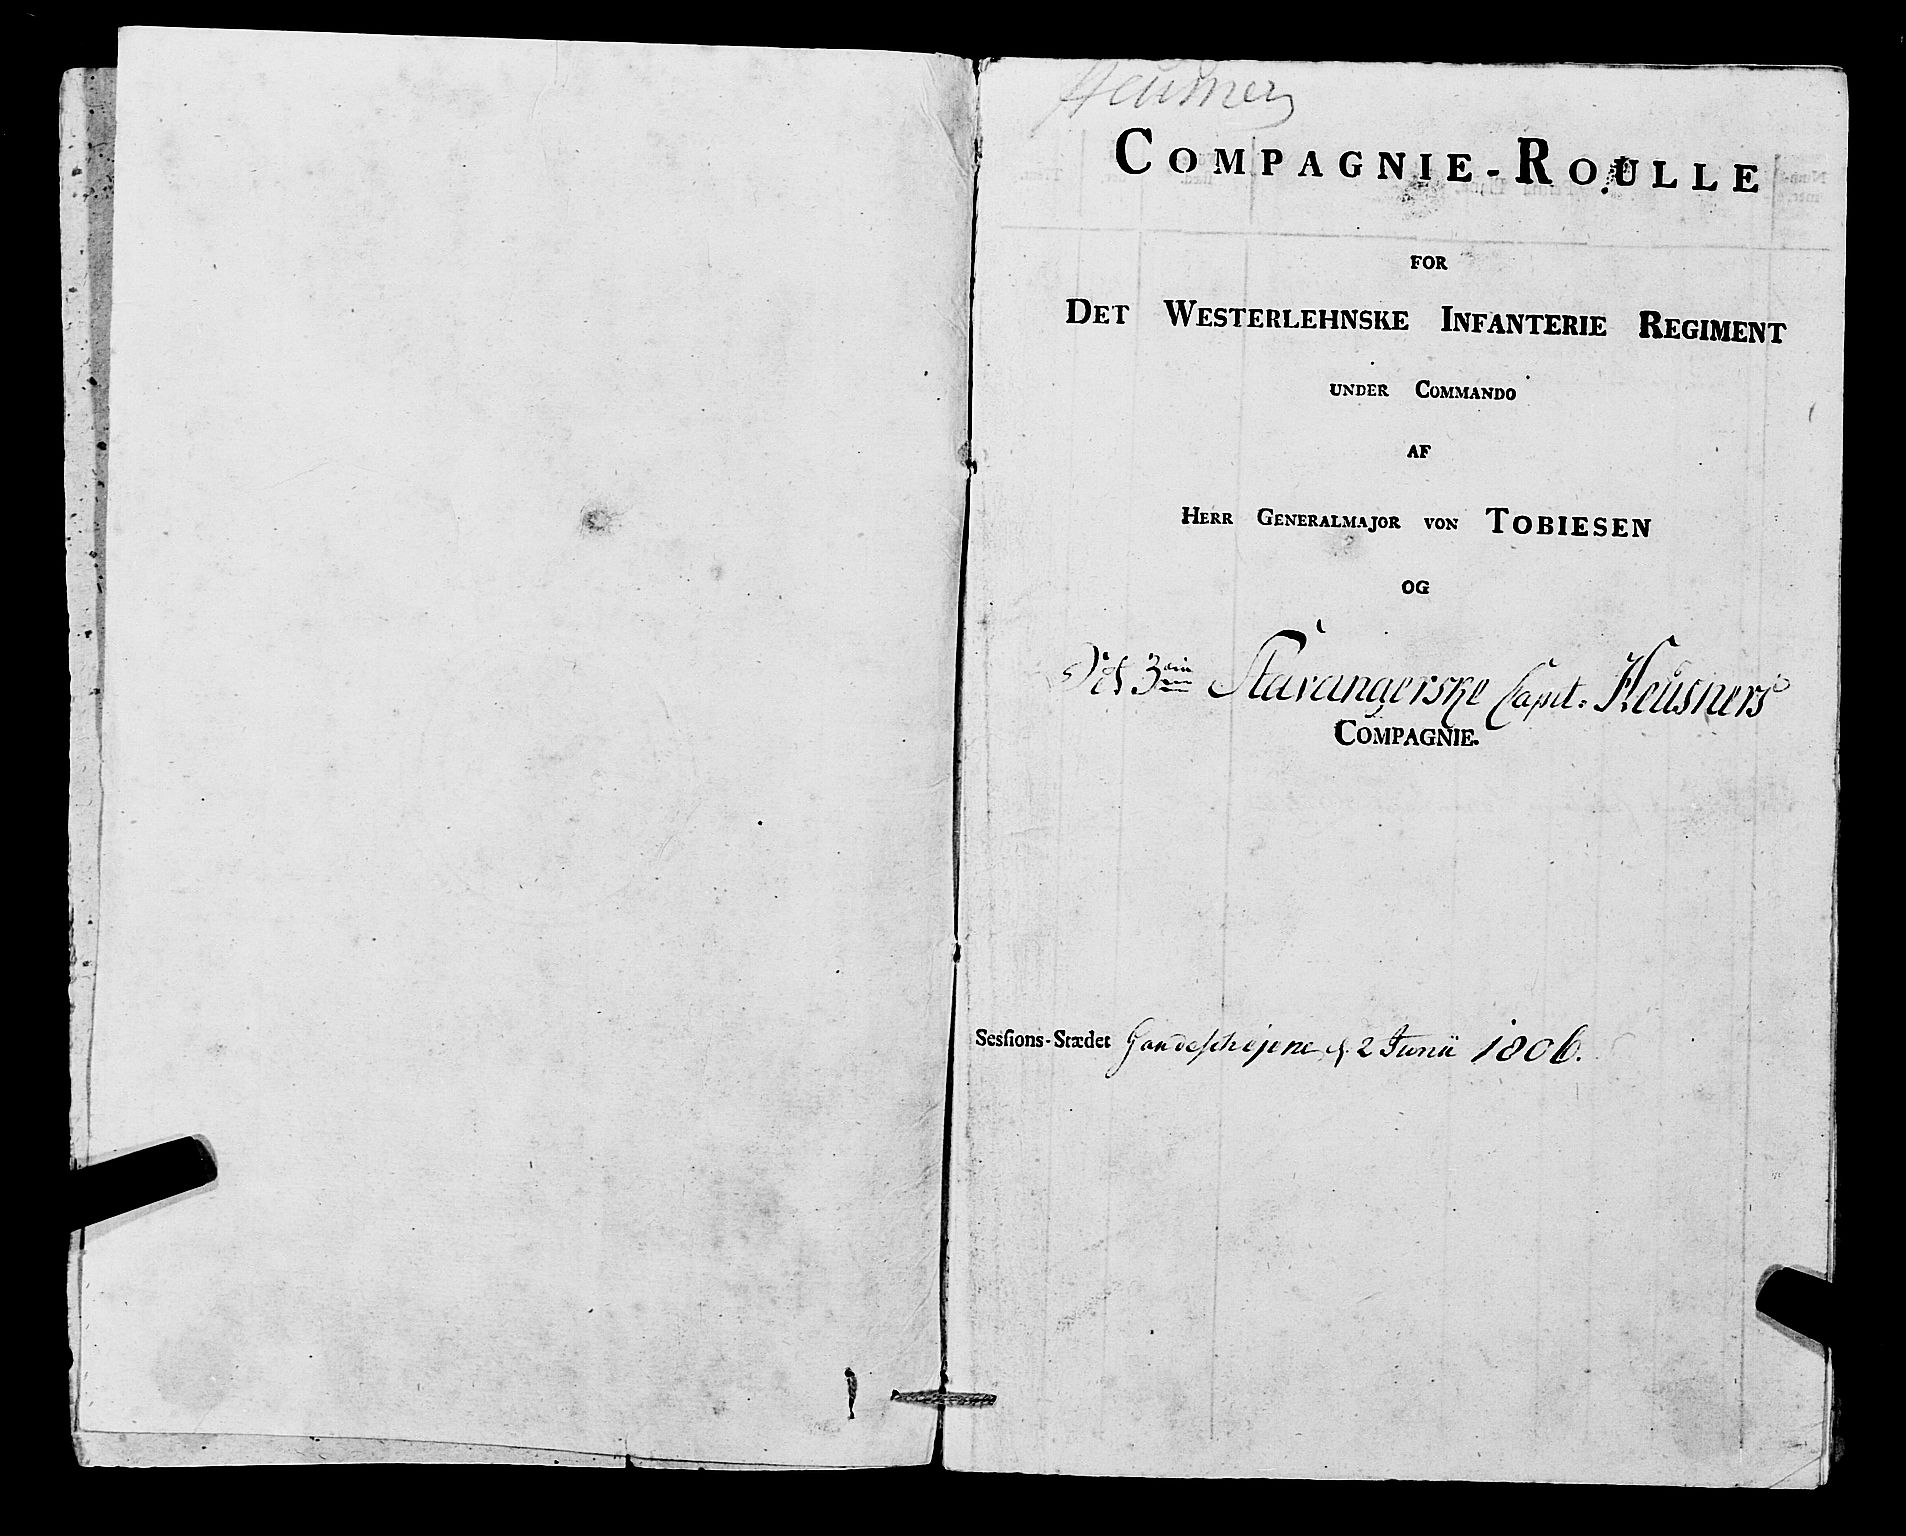 Heusner
COMPAGNIE-ROULLE
FOR
DET WESTERLEHNSKE INFANTERIE REGIMENT
UNDER COMMANDO
AF
HERR GENERALMAJOR VON TOBIESEN
OG
Stavangerske Capit: Heusners
COMPAGNIE.
Sesſions-Stædet 2 Junii 1806.